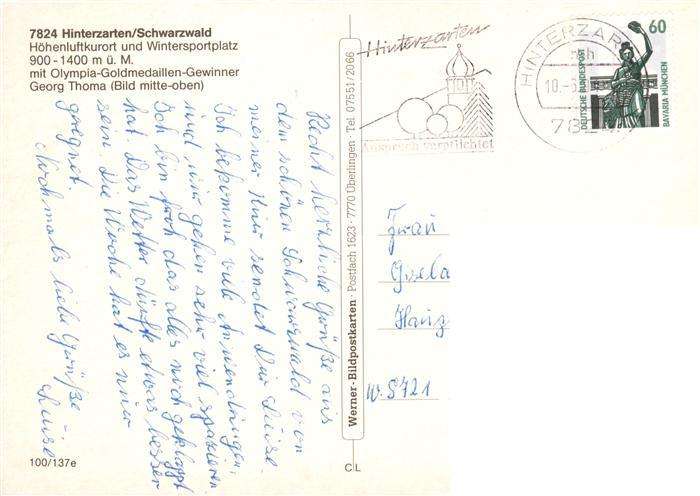 7824 Hinterzarten/Schwarzwald
Höhenluftkurort und Wintersportplatz
900 - 1400 m ü. M.
mit Olympia-Goldmedaillen-Gewinner
Georg Thoma (Bild mitte-oben)
Recht herzliche Grüße aus
dem schönen Schwarzwald von
meiner Kur sendet Dir Luise.
Ich bekomme viele Anwendungen,
und wir gehen sehr viel spazieren.
Ich bin froh das alles noch geklappt
hat. Das Wetter dürfte etwas besser
sein. Die Woche hat es nur
geregnet.
Nochmals liebe Grüße -
Luise
100/137e
Werner-Bildpostkarten · Postfach 1623 · 7770 Überlingen · Tel 07551/2066
CL
Hinterzarten
Anspruch verpflichtet
HINTERZAR
10.-
782
60
DEUTSCHE BUNDESPOST
BAVARIA MÜNCHEN
Frau
Gisela
W. 8721